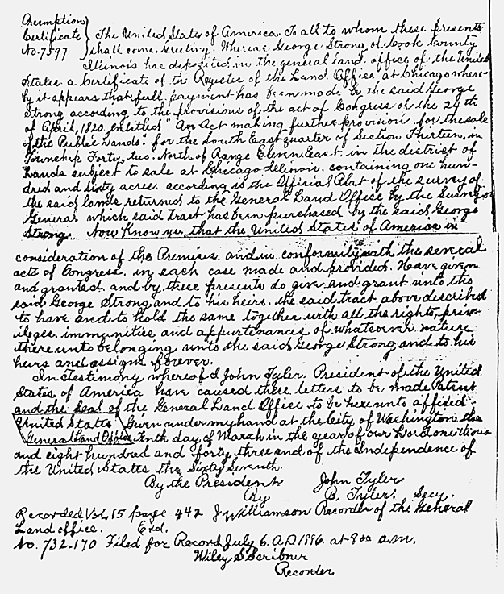 Preemption
Certificate
No. 7577
The United States of America. To all to whom these presents
shall come, Greeting: Whereas George Strong of Cook County
Illinois has deposited in the general land office of the United
States a Certificate of the Register of the Land Office at Chicago where
by it appears that full payment has been made by the said George
Strong according to the provisions of the act of Congress of the 24th
of April, 1820, entitled "An Act making further provision for the sale
of the Public Lands" for the South East quarter of Section Thirteen, in
Township Forty two North, of Range Eleven East, in the district of
Lands subject to sale at Chicago Illinois, containing one hun-
dred and sixty acres according to the Official Plat of the survey of
the said lands returned to the General Land Office by the Surveyor
General which said tract has been purchased by the said George
Strong. Now Know ye that the United States of America in
consideration of the Premises and in conformity with the several
acts of Congress, in such case made and provided. Have given
and granted and by these presents do give and grant unto the
said George Strong and to his heirs, the said tract above described
to have and to hold the same together with all the rights, priv-
ileges, immunities and appurtenances of whatever nature
thereunto belonging unto the said George Strong and to his
heirs and assigns forever.
In Testimony whereof I John Tyler, President of the United
States of America have caused these letters to be made Patent
and the Seal of the General Land Office to be hereunto affixed.
United States Given under my hand at the City of Washington the
General Land Office day of March in the year of our Lord one thous
and eight hundred and forty three and of the Independence of
the United States the Sixty Seventh.
By the President John Tyler
By B. Tyler, Secy.
Recorded Vol 15 page 442 J. Williamson Recorder of the General
Land office. Exd.
No. 732170 Filed for Record July 6. A.D. 1886 at 8 00 a.m.
Wiley S. Scribner
Recorder